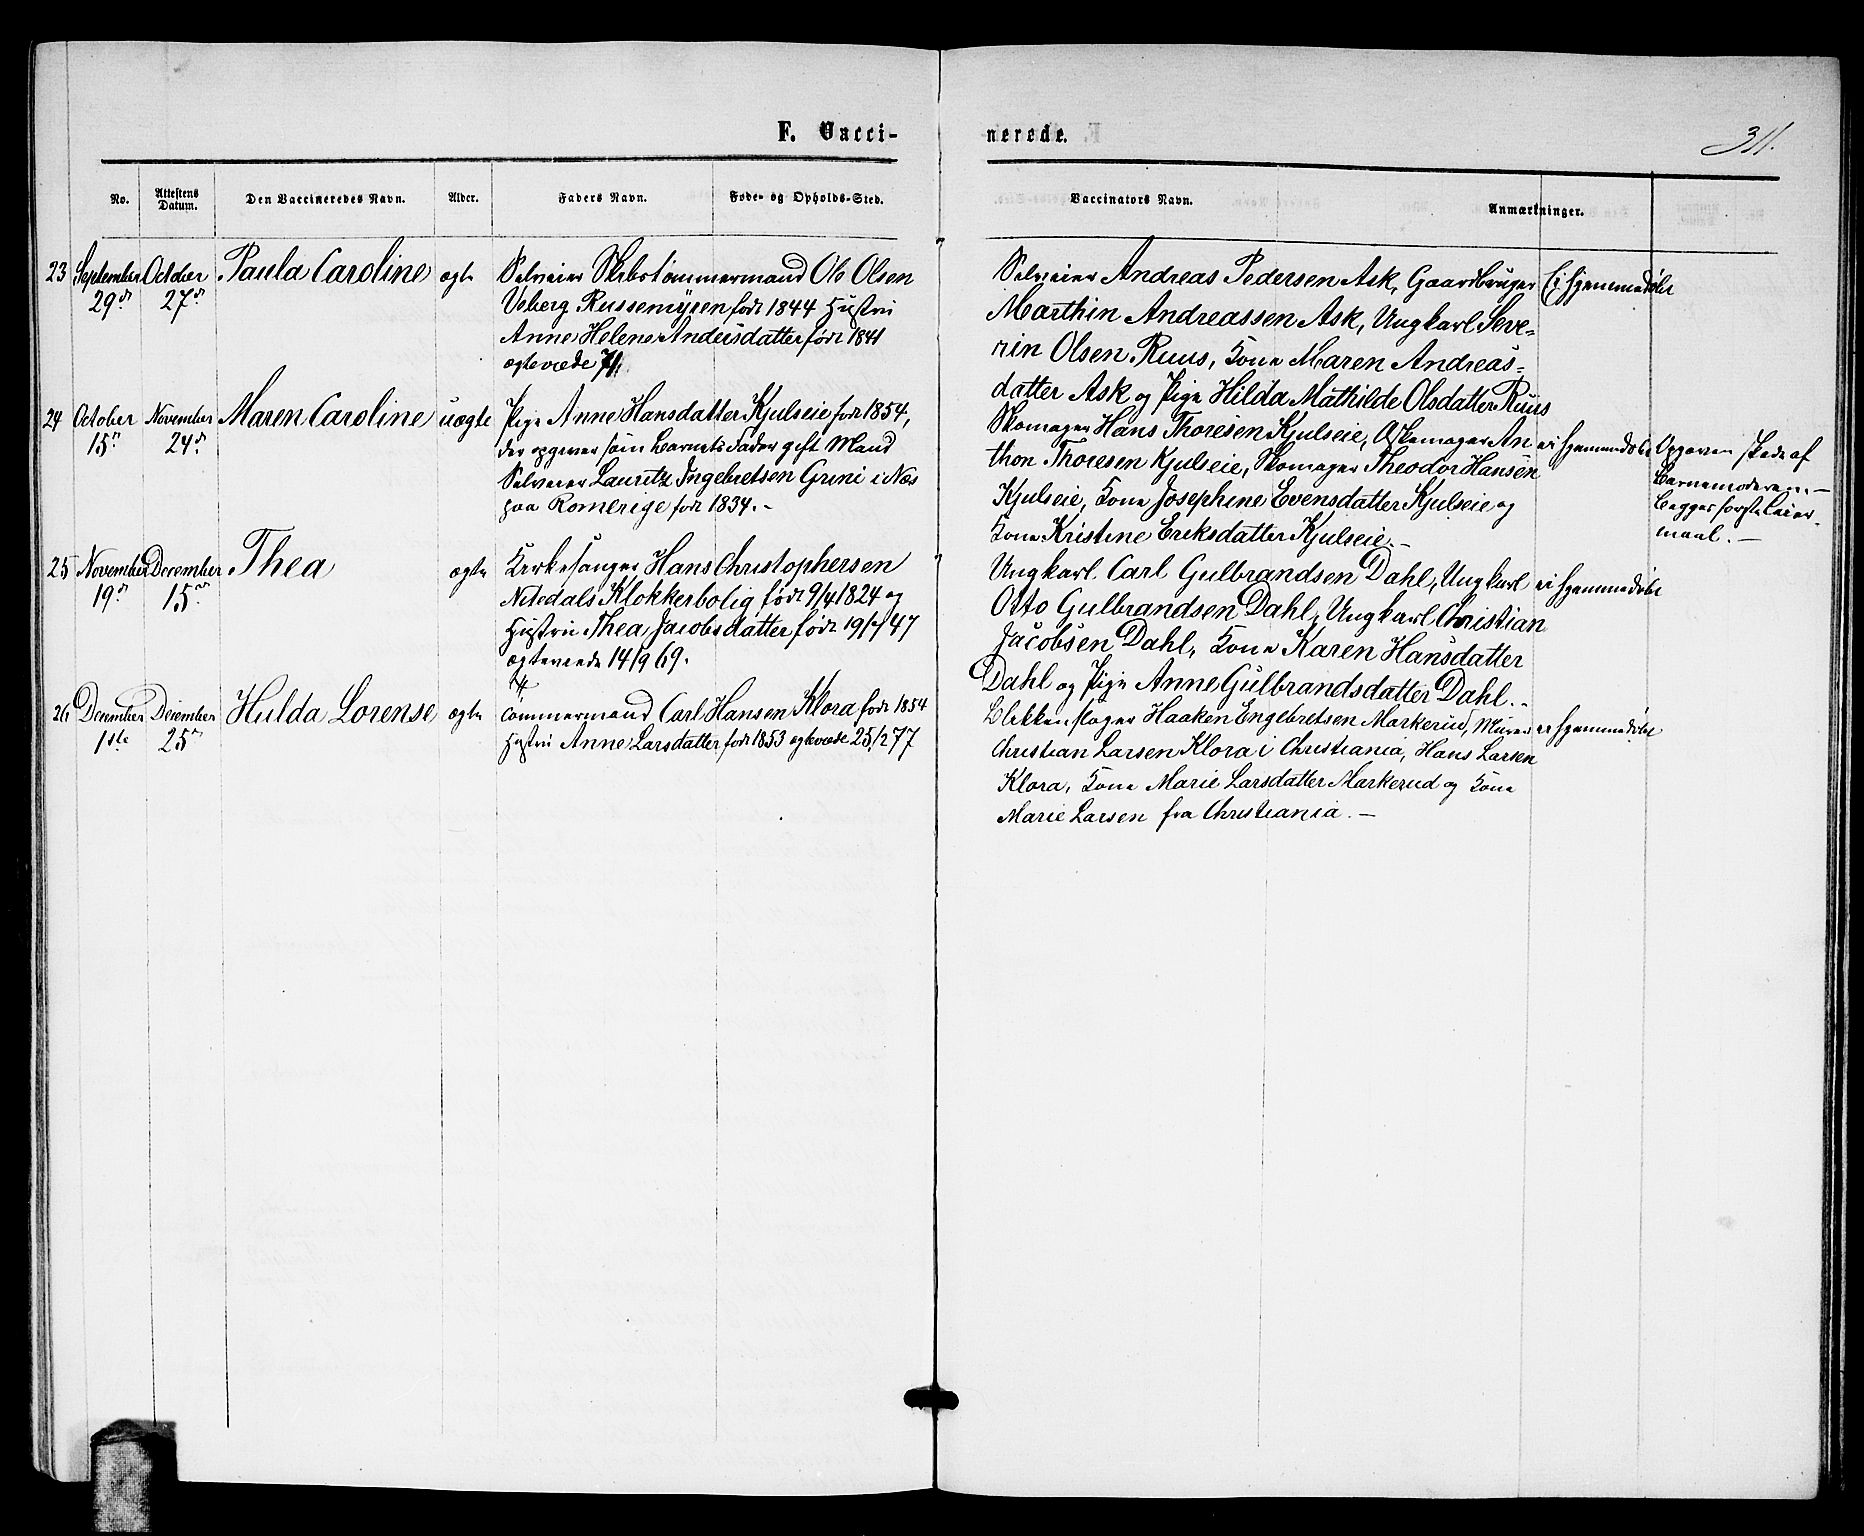 F. Vacci-
nerede.
311.
No.
Attestens Datum.
Den Vaccineredes Navn.
Alder.
Faders Navn.
Føde- og Opholds-Sted.
Vaccinators Navn.
Anmærkninger.
23 September 29de October 27de Paula Caroline ægte
Selveier Skibstømmermand Ole Olsen
Veberg Russemyren født 1844 Hustru
Anne Helene Andersdatter født 1841
ægteviede 71.
Selveier Andreas Pedersen Ask, Gaardbruger
Marthin Andreassen Ask, Ungkarl Seve-
rin Olsen Ruus, Kone Maren Andreas-
datter Ask og Pige Hilda Mathilde Olsdatter Ruus
Ei hjemmedøbt
24 October 15de November 24de Maren Caroline uægte
Pige Anne Hansdatter Kjulseie født 1854,
der opgiver som Barnets Fader gift Mand
Selveier Lauritz Ingebretsen Grini i Næs
paa Romerige født 1834.-
Skomager Hans Thoresen Kjulseie, Skomager An
thon Thoresen Kjulseie, Skomager Theodor Hansen
Kjulseie, Kone Josephine Evensdatter Kjulseie og
Kone Kristine Eriksdatter Kjulseie.-
ei hjemmedøbt
Opgaven skede af
Barnemoderen.-
Begges første Leier-
maal.-
25 November 19de December 15de Thea ægte
Kirkesanger Hans Christophersen
Nitedals Klokkerbolig født 9/4 1824 og
Hustru Thea Jacobsdatter født 19/7 47
ægteviede 14/9 69.
Ungkarl Carl Gulbrandsen Dahl, Ungkarl
Otto Gulbrandsen Dahl, Ungkarl Christian
Jacobsen Dahl, Kone Karen Hansdatter
Dahl og Pige Anne Gulbrandsdatter Dahl.-
ei hjemmedøbt
26 December 1ste December 25de Hulda Lorense ægte
Tømmermand Carl Hansen Klora født 1854
Hustru Anne Larsdatter født 1853 ægteviede 25/12 77
Blikkenslager Haaken Engebretsen Markerud, Murer
Christian Larsen Klora i Christiania, Hans Larsen
Klora, Kone Marie Larsdatter Markerud og Kone
Marie Larsen fra Christiania.-
ei hjemmedøbt